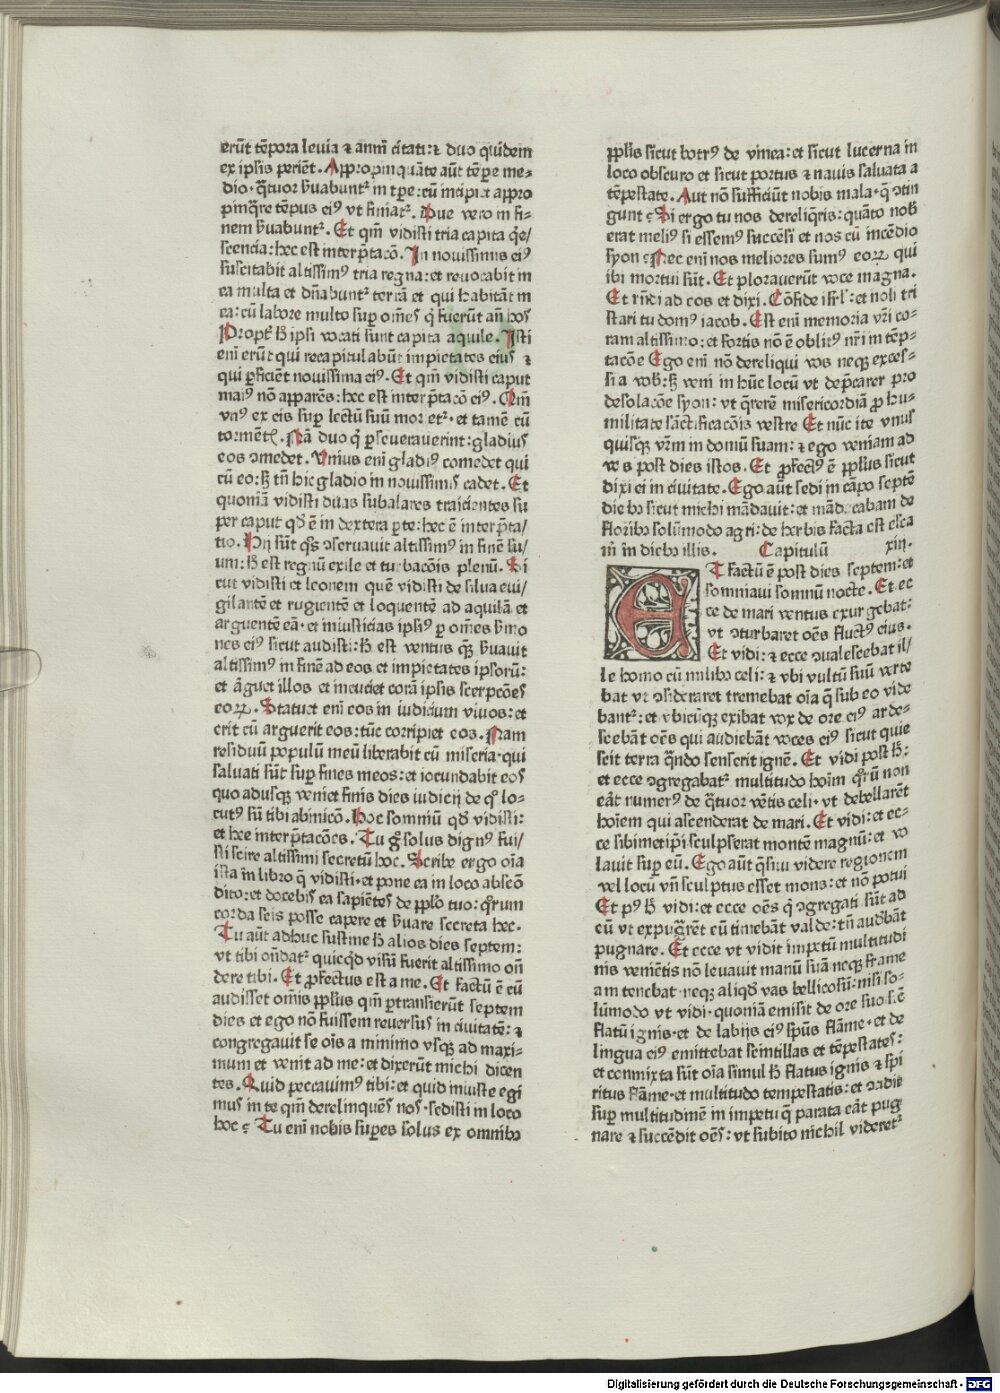 erūt tēpora levia ⁊ annī cītati:⁊ duo quidem
ex ipsis perient. Appropinquāte aūt tēpe me-
dio· q̄tuor ẜuabuntꝛ in tꝑe:cū incipiet appro
pinq̄re tēpus eiꝰ vt finiatꝛ. Due vero in fi-
nem ẜuabuntꝛ. Et qm̄ vidisti tria capita q̄e/
scencia:hec est interp̄tacō. In novissimis eiꝰ
suscitabit altissimꝰ tria regna:et revocabit in
ea multa et dn̄abuntꝛ terrā et qui habitāt in
ea:cū labore multo sup om̄es q̄ fuerūt an̄ hos
Propt̄ ħ ipsi vocati sunt capita aquile. Isti
eni erūt qui recapitulabūt impietates eius ⁊
qui ꝑficiēt novissima eiꝰ. Et qm̄ vidisti caput
maiꝰ nō apparēs:hec est interp̄tacō eiꝰ. Qm̄
vnꝰ ex eis sup lectū suū morietꝛ·et tamē cū
tormētꝭ. Nā duo q̄ ꝑseueraverint:gladius
eos ꝯmedet. Vnius eni gladiꝰ comedet qui
cū eo:ꝫ tn̄ hic gladio in novissimis cadet. Et
quoniā vidisti duas subalares traicientes su
per caput qđ ē in dextera ꝑte:hec ē interp̄ta/
tio. Hii sūt q̄s ꝯseruavit altissimꝰ in finē su/
um:ħ est regnū exile et turbacōis plenū. Si
cut vidisti et leonem quē vidisti de silua evi/
gilantē et rugientē et loquentē ad aquilā et
arguentē eā·et iniusticias ipsiꝰ ꝑ om̄es ẜmo
nes eiꝰ sicut audisti:ħ est ventus qꝫ ẜuavit
altissimꝰ in finē ad eos et impietates ipsorū:
et āguet illos et incuciet corā ipsis scerpcōes
eoꝝ. Statuet eni eos in iudicium viuos:et
erit cū arguerit eos:tūc corripiet eos. Nam
residuū populū meū liberabit cū miseria·qui
saluati sūt sup fines meos:et iocundabit eos
quo adusqꝫ veniet finis dies iudicij de qº lo-
cutꝰ sū tibi abinicō. Hoc somniū qđ vidisti:
et hee interp̄tacōes. Tu gͦ solus dignꝰ fui/
sti scire altissimi secretū hoc. Scribe ergo oīa
ista in libro q̄ vidisti·et pone ea in loco abscō
dito:et docebis ea sapiētes de ppl̄o tuo: q̄rum
corda scis posse capere et ẜuare secreta hec.
Tu aūt adhuc sustine ħ alios dies septem:
vt tibi ōndatꝛ quicqđ visū fuerit altissimo on̄
dere tibi. Et ꝓfectus est a me. Et factū ē cū
audisset om̄is ppl̄us qm̄ ꝑtransierūt septem
dies et ego nō fuissem reversus in ciuitatē: ⁊
congregauit se oīs a minimo vsqꝫ ad maxi-
mum et venit ad me:et dixerūt michi dicen
tes. Quid peccauimꝰ tibi:et quid iniuste egi
mus in te qm̄ derelinquēs nos·sedisti in loco
hoc ? Tu eni nobis supes solus ex omnibꝰ
ppl̄is sicut botrꝰ de vinea:et sicut lucerna in
loco obscuro et sicut portus ⁊ nauis saluata a
tēpestate. Aut nō sufficiūt nobis mala·q̄ ꝯtin
gunt ? Si ergo tu nos dereliq̄ris:quāto nob̄
erat meliꝰ si essemꝰ succēsi et nos cū incēdio
syon ? Nec eni nos meliores sumꝰ eoꝝ qui
ibi mortui sūt. Et plorauerūt voce magna.
Et rn̄di ad eos et dixi. Cōfide isrl̄:et noli tri
stari tu domꝰ iacob. Est eni memoria vr̄i co-
ram altissimo:et fortis nō ē oblitꝰ nr̄i in tēp-
tacōe Ego eni nō dereliqui vos neqꝫ exces-
si a vob̄:ꝫ veni in hūc locū vt dep̄carer pro
desolacōe syon: vt q̄rerē misericordiā ꝓ hu-
militate sāctificacōis vestre Et nūc ite vnus
quisqꝫ vr̄m in domū suam: ⁊ ego veniam ad
vos post dies istos. Et ꝓfectꝰ ē ppl̄us sicut
dixi ei in ciuitate. Ego aūt sedi in cāpo septē
diebꝰ sicut michi mādauit:et māducabam de
floribꝰ solūmodo agri:de herbis facta est esca
m̄ in diebꝰ illis. Capitulū xiij.
ET factū ē post dies septem:et
somniaui somnū nocte. Et ec
ce de mari ventus exurgebat:
vt ꝯturbaret oēs fluctꝰ eius.
Et vidi: ⁊ ecce ꝯualescebat il/
le homo cū milibꝰ celi: ⁊ vbi vultū suū verte
bat vt ꝯsideraret tremebat oīa q̄ sub eo vide
bantꝛ:et vbicūqꝫ exibat vox de ore eiꝰ arde-
scebāt oēs qui audiebāt voces eiꝰ sicut quie
scit terra q̄ndo senserit ignē. Et vidi post ħ:
et ecce ꝯgregabatꝛ multitudo hoīm q̄rū non
eāt numerꝰ de q̄tuor vētis celi· vt debellarēt
hoīem qui ascenderat de mari. Et vidi:et ec-
ce sibimetip̄i sculpserat montē magnū:et vo
lauit sup eū. Ego aūt q̄siui videre regionem
vel locū vn̄ sculptus esset mons:et nō potui
Et pꝰ ħ vidi:et ecce oēs q̄ ꝯgregati sūt ad
eū vt expugrēt eū timebāt valde:tn̄ audebāt
pugnare. Et ecce vt vidit impetū multitudi
nis veniētis nō leuauit manū suā neqꝫ frame
am tenebat·neqꝫ aliqđ vas bellicosū:nisi so-
lūmodo vt vidi·quoniā emisit de ore suo s.ē
flatū ignis·et de labijs eiꝰ sp̄us flāme·et de
lingua eiꝰ emittebat scintillas et tēpestates:
et conmixta sūt oīa simul ħ flatus ignis ⁊ spi
ritus flāme·et multitudo tempestatis:et ꝯcidit
sup multitudinē in impetu q̄ parata eāt pug
nare ⁊ succēdit oēs: vt subito nichil videretꝛ
Digitalisierung gefördert durch die Deutsche Forschungsgemeinschaft - DFG